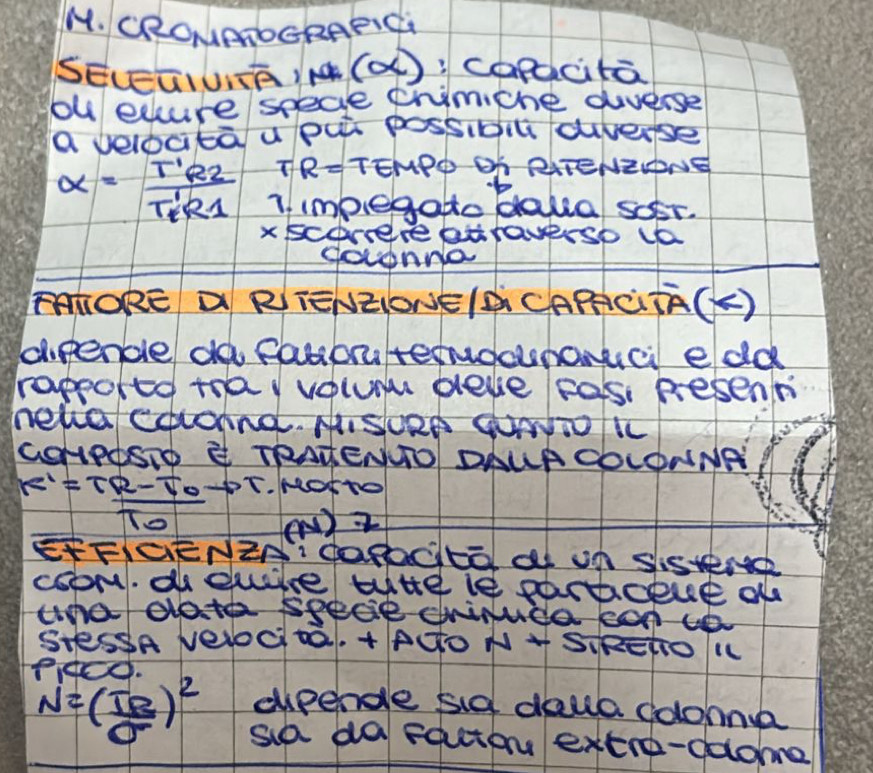 M. CROMATOGRAFICI
SELETTIVITÀ: (α): capacità
di eluire specie chimiche diverse
a velocità il più possibili diverse
α = T'R2 / T'R1 TR = TEMPO DI RITENZIONE
T. impiegato dalla sost.
x scorrere attraverso la
colonna
FATTORE DI RITENZIONE/DI CAPACITÀ (K)
dipende da fattori termodinamici e dal
rapporto tra i volumi delle fasi presenti
nella colonna. MISURA QUANTO IL
COMPOSTO È TRATTENUTO DALLA COLONNA
K' = TR - T0 / T0 → T. MORTO
(N)
EFFICIENZA: capacità di un sistema
crom. di eluire tutte le particelle di
una data specie chimica con la
stessa velocità. + ALTO N + STRETTO IL
PICCO.
N = (TR/σ)² dipende sia dalla colonna
sia da fattori extra-colonna